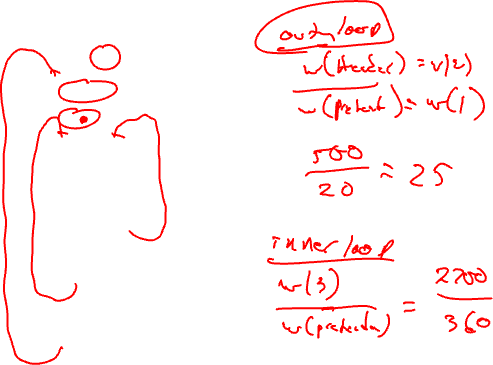 outer loop
w(header) = w(2)
w(prehead) = w(1)
500
20 = 25
inner loop
w(3)
w(preheader) = 2700
360